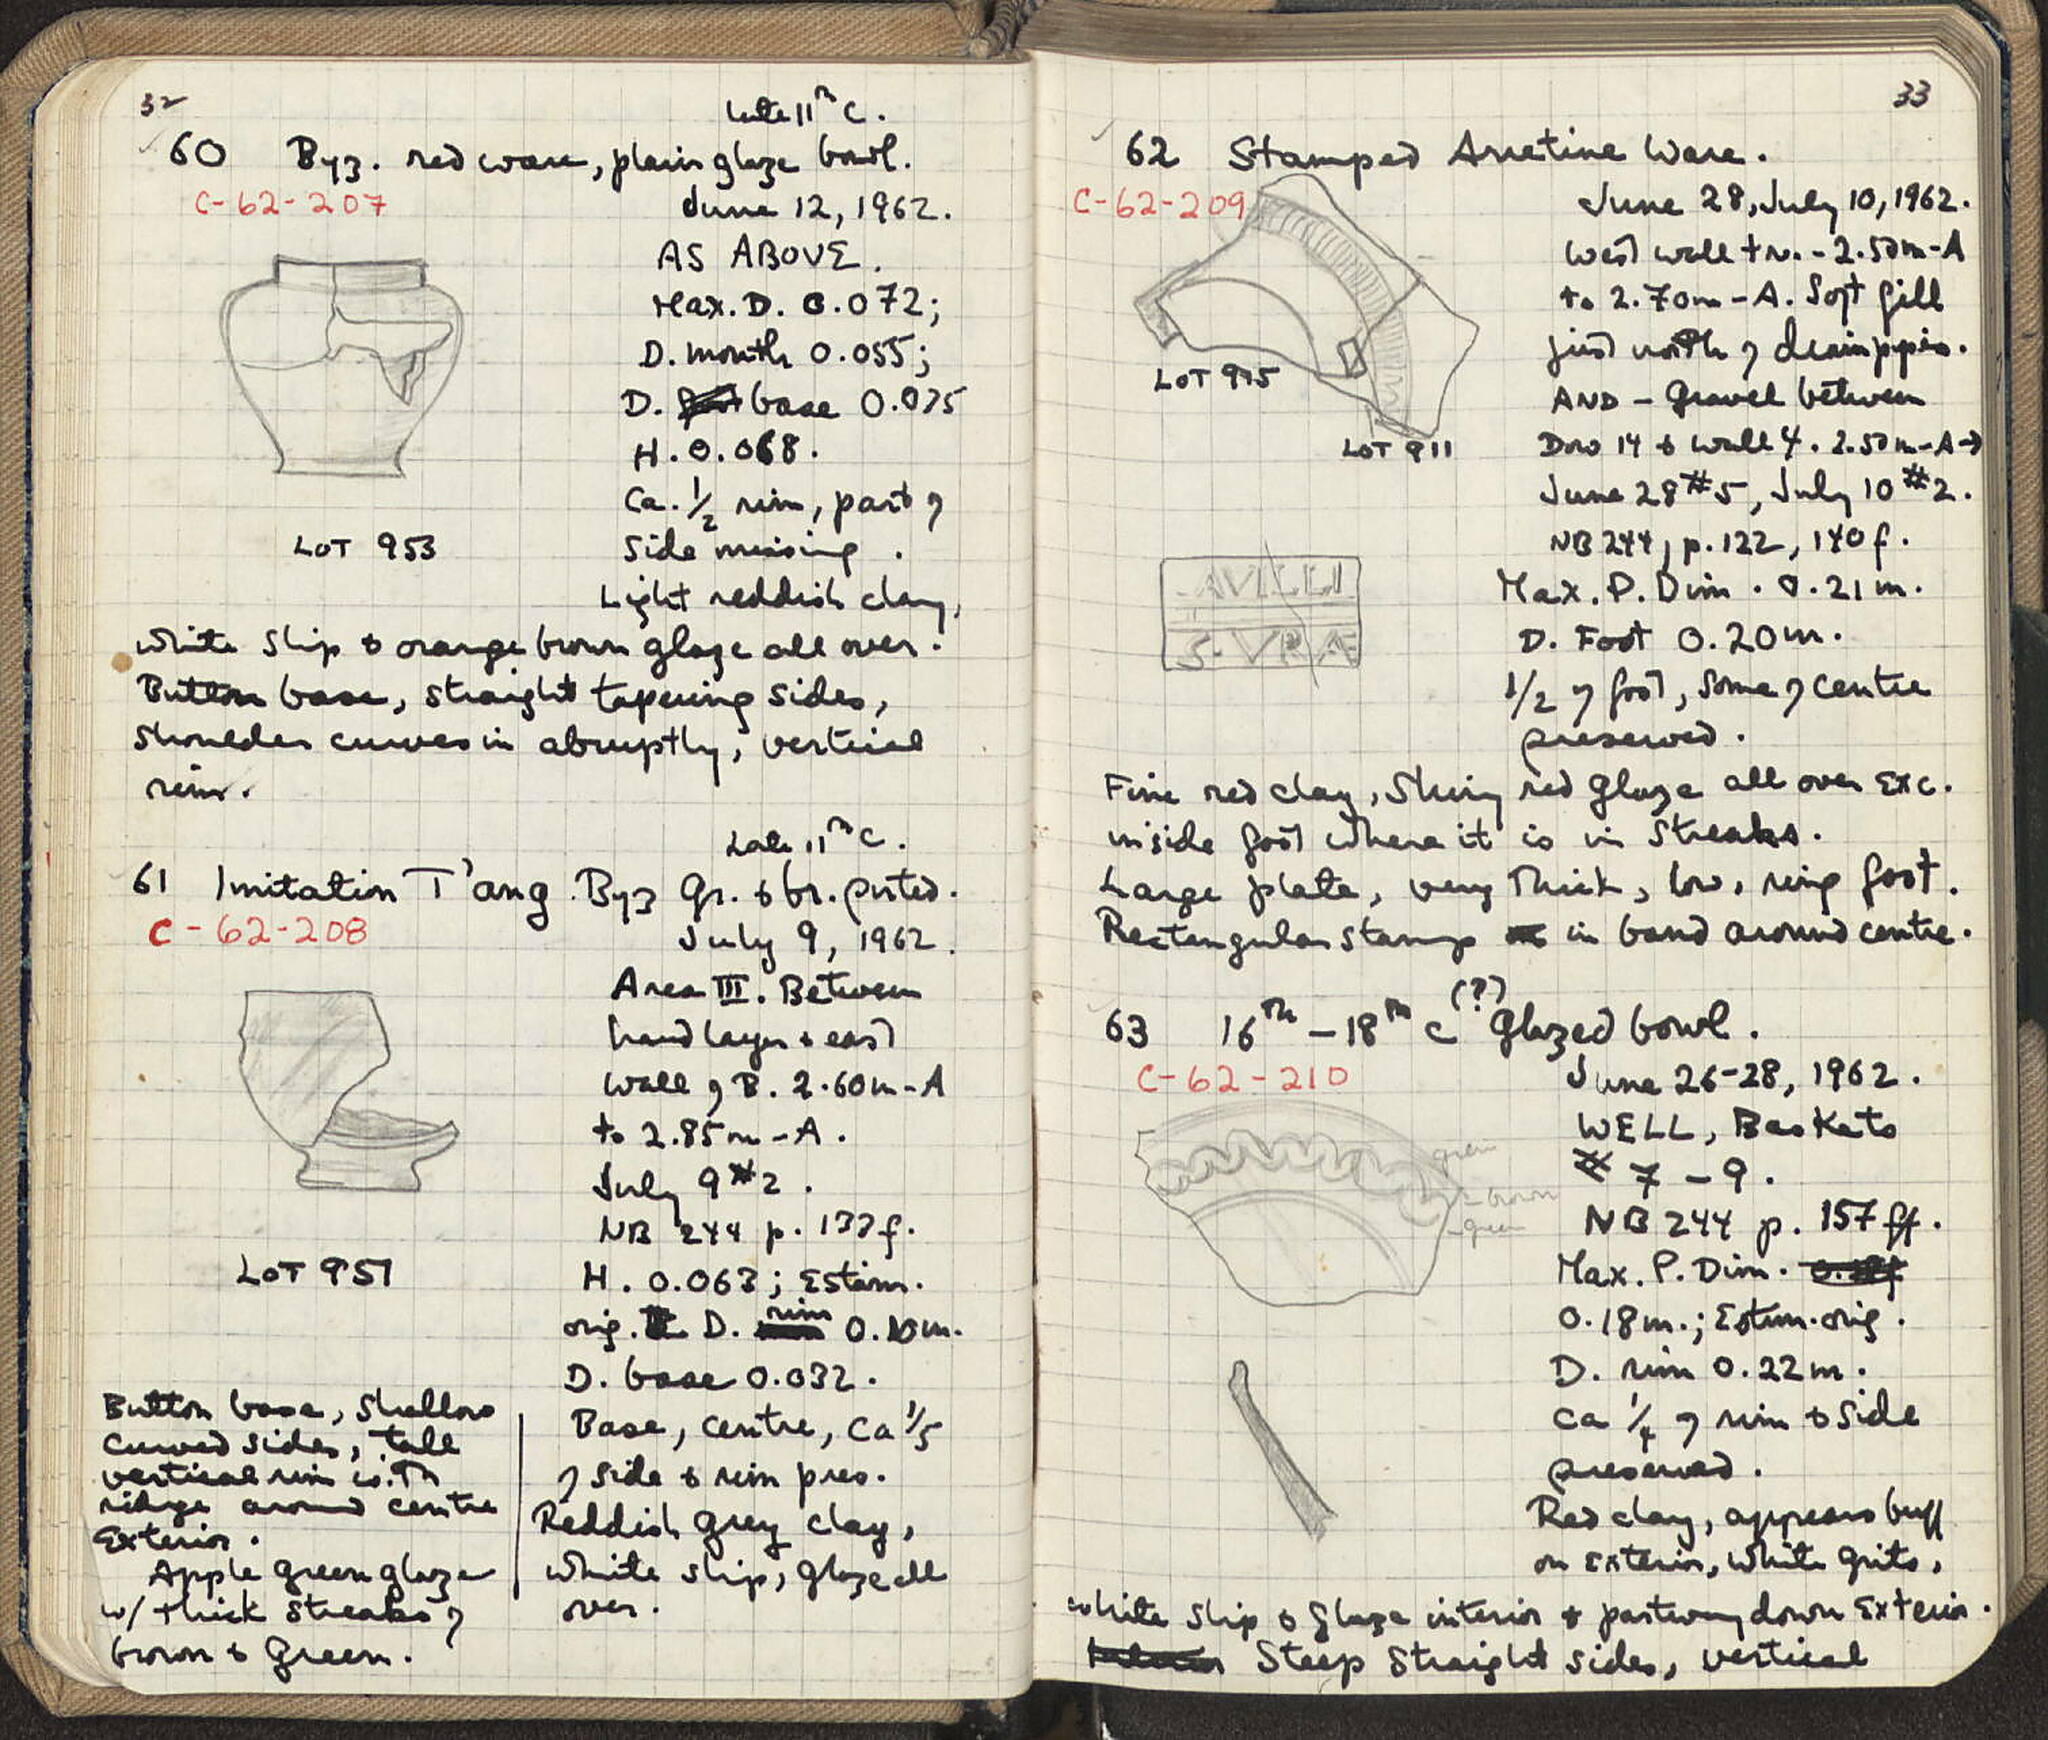 32
Late 11th C.
60 Byz. red ware, plain glaze bowl.
C-62-207
June 12, 1962.
AS ABOVE.
Max. D. 0.072;
D. mouth 0.055;
D. base 0.035
H. 0.068.
Ca. 1/2 rim, part of
side missing.
LOT 953
Light reddish clay,
white slip & orange brown glaze all over.
Button base, straight tapering sides,
shoulder curves in abruptly, vertical
rim.
Late 11th C.
61 Imitation T'ang. Byz Gr. & br. ptd.
C-62-208
July 9, 1962.
Area III. Between
hard layer & east
wall of B. 2.60m-A
to 2.85m-A.
July 9 #2.
NB 244 p. 133f.
LOT 951
H. 0.063; Estim.
orig. D. rim 0.10m.
D. base 0.032.
Base, centre, ca 1/5
of side & rim pres.
Reddish grey clay,
white slip, glaze all
over.
Button base, shallow
curved sides, tall
vertical rim with
ridge around centre
exterior.
Apple green glaze
w/ thick streaks of
brown & green.
33
62 Stamped Arretine Ware.
C-62-209
June 28, July 10, 1962.
West wall + N. -2.50m-A
to 2.70m-A. Soft fill
just north of drainpipe.
LOT 975
AND - Gravel between
Dow 14 & wall 4. 2.50m-A→
LOT 911
June 28 #5, July 10 #2.
NB 244, p. 122, 140f.
AVILLI
S·VRA
Max. P. Dim. 0.21m.
D. Foot 0.20m.
1/2 of foot, some of centre
preserved.
Fine red clay, shiny red glaze all over exc.
inside foot where it is in streaks.
Large plate, very thick, low, ring foot.
Rectangular stamp in band around centre.
63 16th-18th C (?) Glazed bowl.
C-62-210
June 26-28, 1962.
WELL, Baskets
# 7-9.
green
brown
green
NB 244 p. 157ff.
Max. P. Dim.
0.18m.; Estim. orig.
D. rim 0.22m.
Ca 1/4 of rim & side
preserved.
Red clay, appears buff
on exterior, white grits,
white slip & glaze interior & partway down exterior.
Steep straight sides, vertical